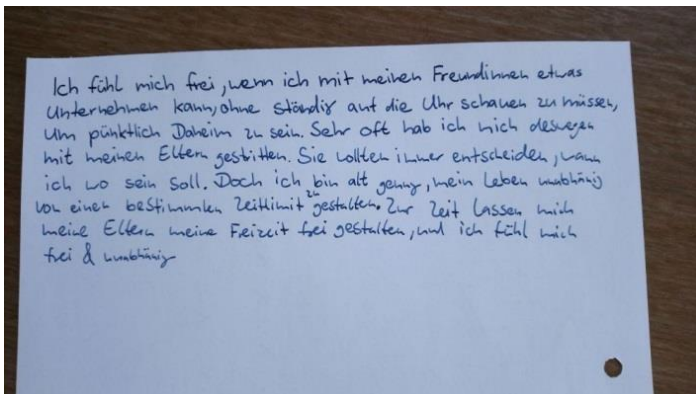 Ich fühl mich frei, wenn ich mit meinen Freundinnen etwas
Unternehmen kann, ohne ständig auf die Uhr schauen zu müssen,
Um pünktlich Daheim zu sein. Sehr oft hab ich mich deswegen
mit meinen Eltern gestritten. Sie wollten immer entscheiden, wann
ich wo sein soll. Doch ich bin alt genug, mein Leben unabhänig
von einen bestimmten Zeitlimit zu gestalten. Zur Zeit lassen mich
meine Eltern meine Freizeit frei gestalten, und ich fühl mich
frei & unabhänig